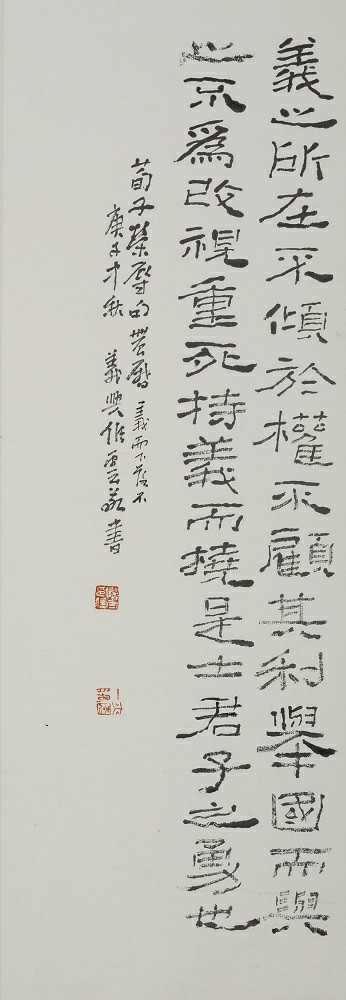 義之所在不傾於權不顧其利舉國而與
之不為改視重死持義而撓是士君子之勇也
荀子榮辱句 義而下落不
庚子 秋 義興 書